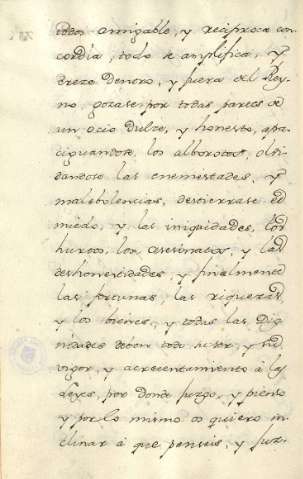 todos amigable, y reciproca con-
cordia, todo se amplifica, y
dentro, y fuera del Rey-
no, gozase por todas partes de
un ocio dulze, y honesto, apa-
ciguandose los alborotos, olvi-
dandose las enemestades, y
malebolencias, destierrase el
miedo, y las iniquidades, los
hurtos, los asesinatos, y las
deshonestidades, y finalmente
las fortunas, las riquezas,
y los bienes, y todas las Dig-
nidades deben todo su ser, y su
vigor, y acrecentamiento á las
Leyes, por donde juzgo, y pienso
y por lo mismo os quiero in-
clinar á que penseis, y juz-